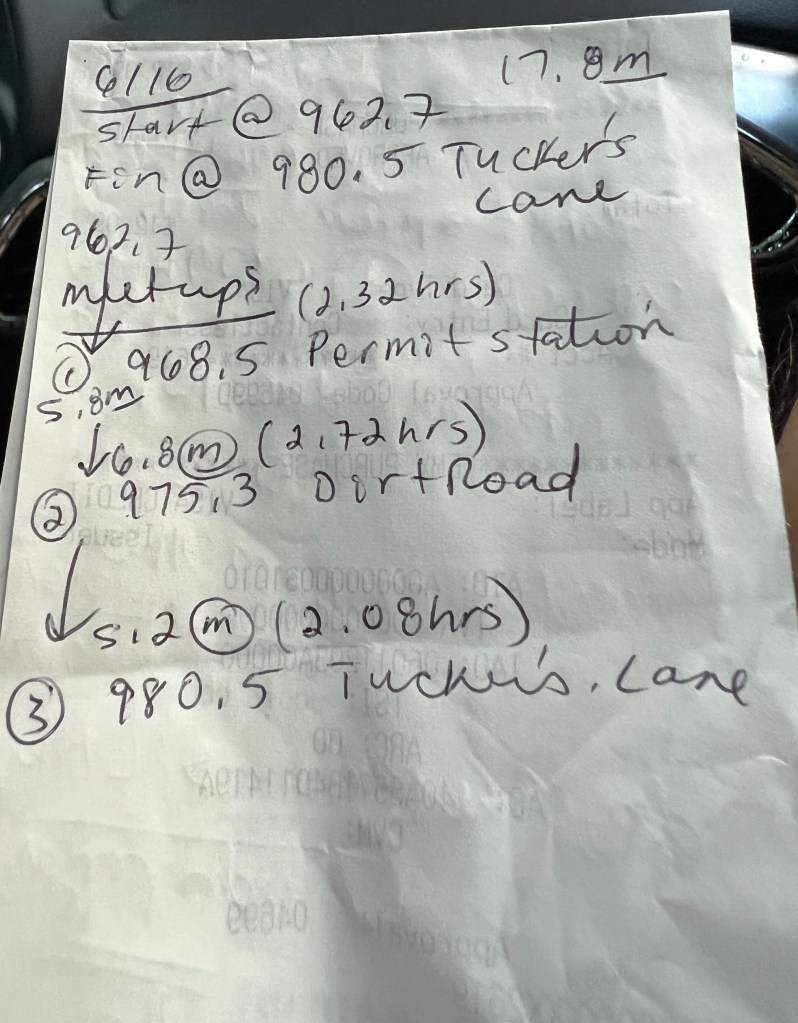 6/16 17.8m
start @ 962.7
Fin @ 980.5 Tucker's
Lane
962.7
meetups (2.32hrs)
① 968.5 Permit station
5.8m
↓6.8 m (2.72hrs)
② 975.3 Dirt Road
↓5.2 m (2.08hrs)
③ 980.5 Tucker's Lane